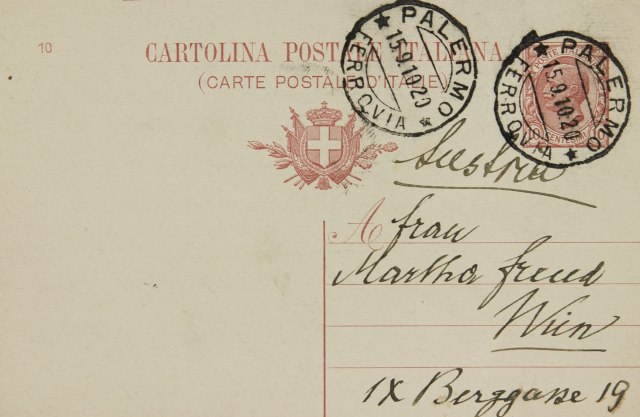 10
CARTOLINA POSTALE ITALIANA
(CARTE POSTALE D'ITALIE)
PALERMO
15.9.10.20
FERROVIA
PALERMO
15.9.10.20
FERROVIA
Austria
A frau
Martha freud
Wien
IX Berggasse 19